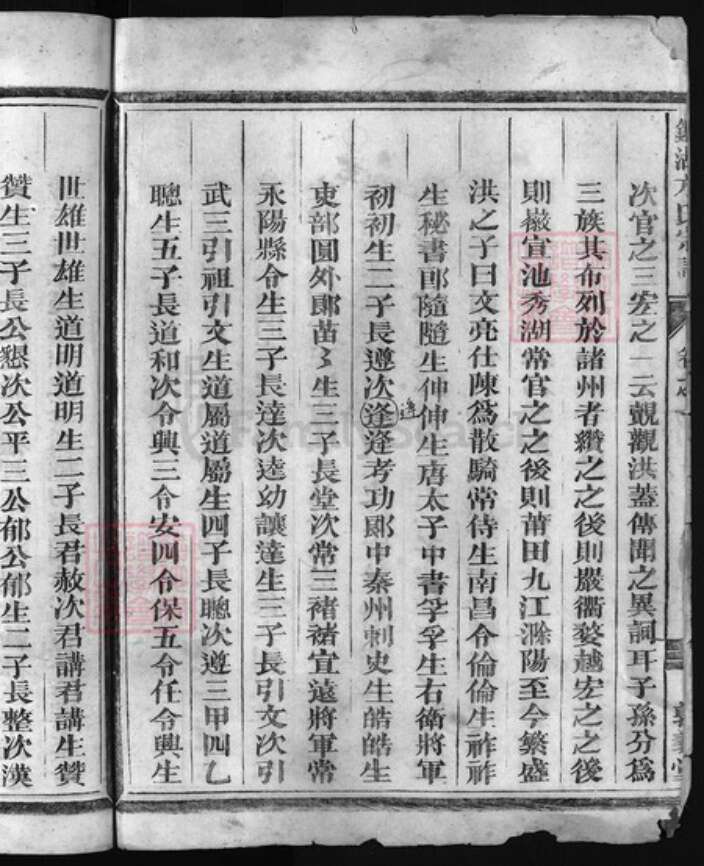 次官之三宏之一云覬觀洪蓋傳聞之異詞耳子孫分為
三族其布列於諸州者纘之之後則嚴衢婺越宏之之後
則徽宣池秀湖常官之之後則莆田九江滁陽至今繁盛
洪之子曰文亮仕陳為散騎常侍生南昌令倫倫生祚祚
生秘書郎隨隨生伸伸生唐太子中書孚孚生右衛將軍
初初生二子長遵次逢逢考功郎中秦州刺史生皓皓生
吏部圓外郎苗〻生三子長堂次常三褚褚宣遠將軍常
永陽縣令生三子長達次逵幼讓達生三子長引文次引
武三引祖引文生道屬道屬生四子長聰次遵三甲四乙
聰生五子長道和次令興三令安四令保五令任令興生
世雄世雄生道明道明生二子長君赦次君講君講生贊
贊生三子長公懇次公平三公郁公郁生二子長整次漢